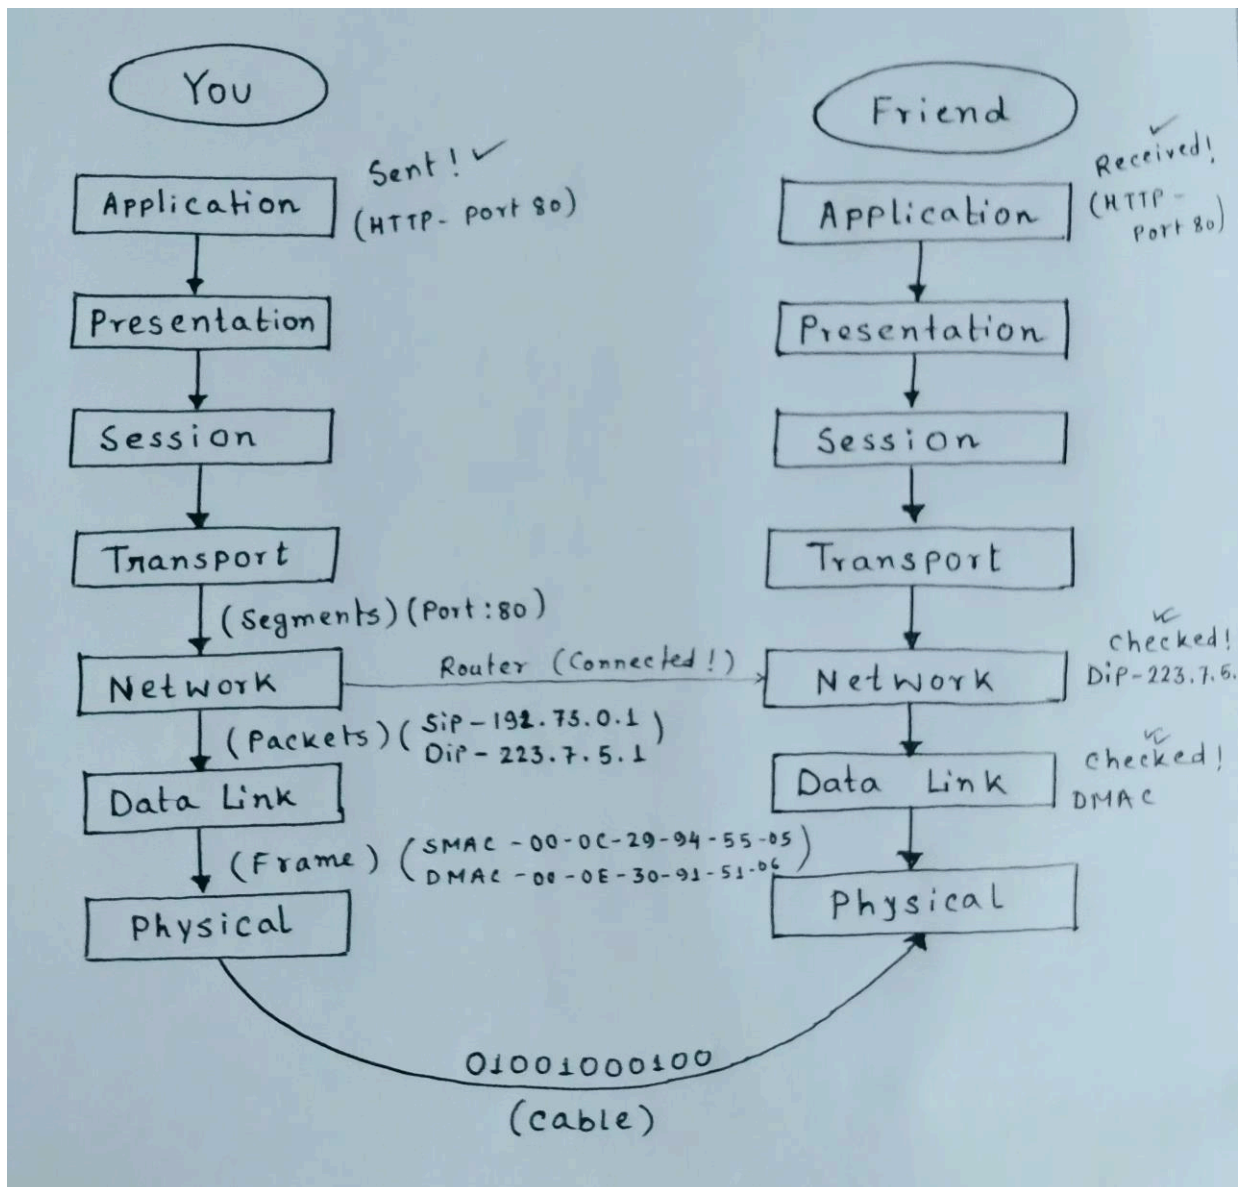 You
Application
Sent! ✓
(HTTP- Port 80)
Presentation
Session
Transport
(Segments) (Port:80)
Network
Router (Connected!)
(Packets) (SiP-192.75.0.1
DiP-223.7.5.1)
Data Link
(Frame) (SMAC-00-0C-29-94-55-05
DMAC-00-0E-30-91-51-06)
Physical
01001000100
(cable)
Friend
Application
✓
Received!
(HTTP-
Port 80)
Presentation
Session
Transport
Network
checked!
DiP-223.7.5.
Data Link
checked!
DMAC
Physical